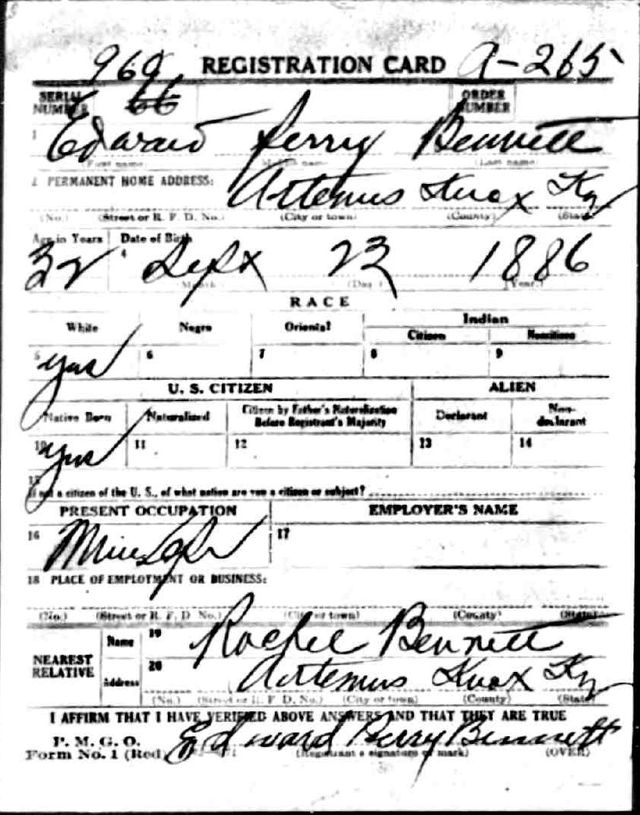 969 REGISTRATION CARD A-265
SERIAL NUMBER 66 ORDER NUMBER
1 Edward Perry Bennett
(First name) (Middle name) (Last name)
2 PERMANENT HOME ADDRESS: Artemus Knox Ky
(No.) (Street or R. F. D. No.) (City or town) (County) (State)
Age in Years Date of Birth
32 4 Sept 23 1886
Month (Day.) (Year.)
RACE
White Negro Oriental Indian
Citizen Noncitizen
5 yes 6 7 8 9
U. S. CITIZEN ALIEN
Native Born Naturalized Citizen by Father's Naturalization Before Registrant's Majority Declarant Non-declarant
10 yes 11 12 13 14
15
If not a citizen of the U. S., of what nation are you a citizen or subject?
PRESENT OCCUPATION EMPLOYER'S NAME
16 17
18 PLACE OF EMPLOYMENT OR BUSINESS:
(No.) (Street or R. F. D. No.) (City or town) (County) (State)
NEAREST RELATIVE Name 19 Rachel Bennett
Address 20 Artemus Knox Ky
(No.) (Street or R. F. D. No.) (City or town) (County) (State)
I AFFIRM THAT I HAVE VERIFIED ABOVE ANSWERS AND THAT THEY ARE TRUE
P. M. G. O.
Form No. 1 (Red) Edward Perry Bennett
(Registrant's signature or mark) (OVER)